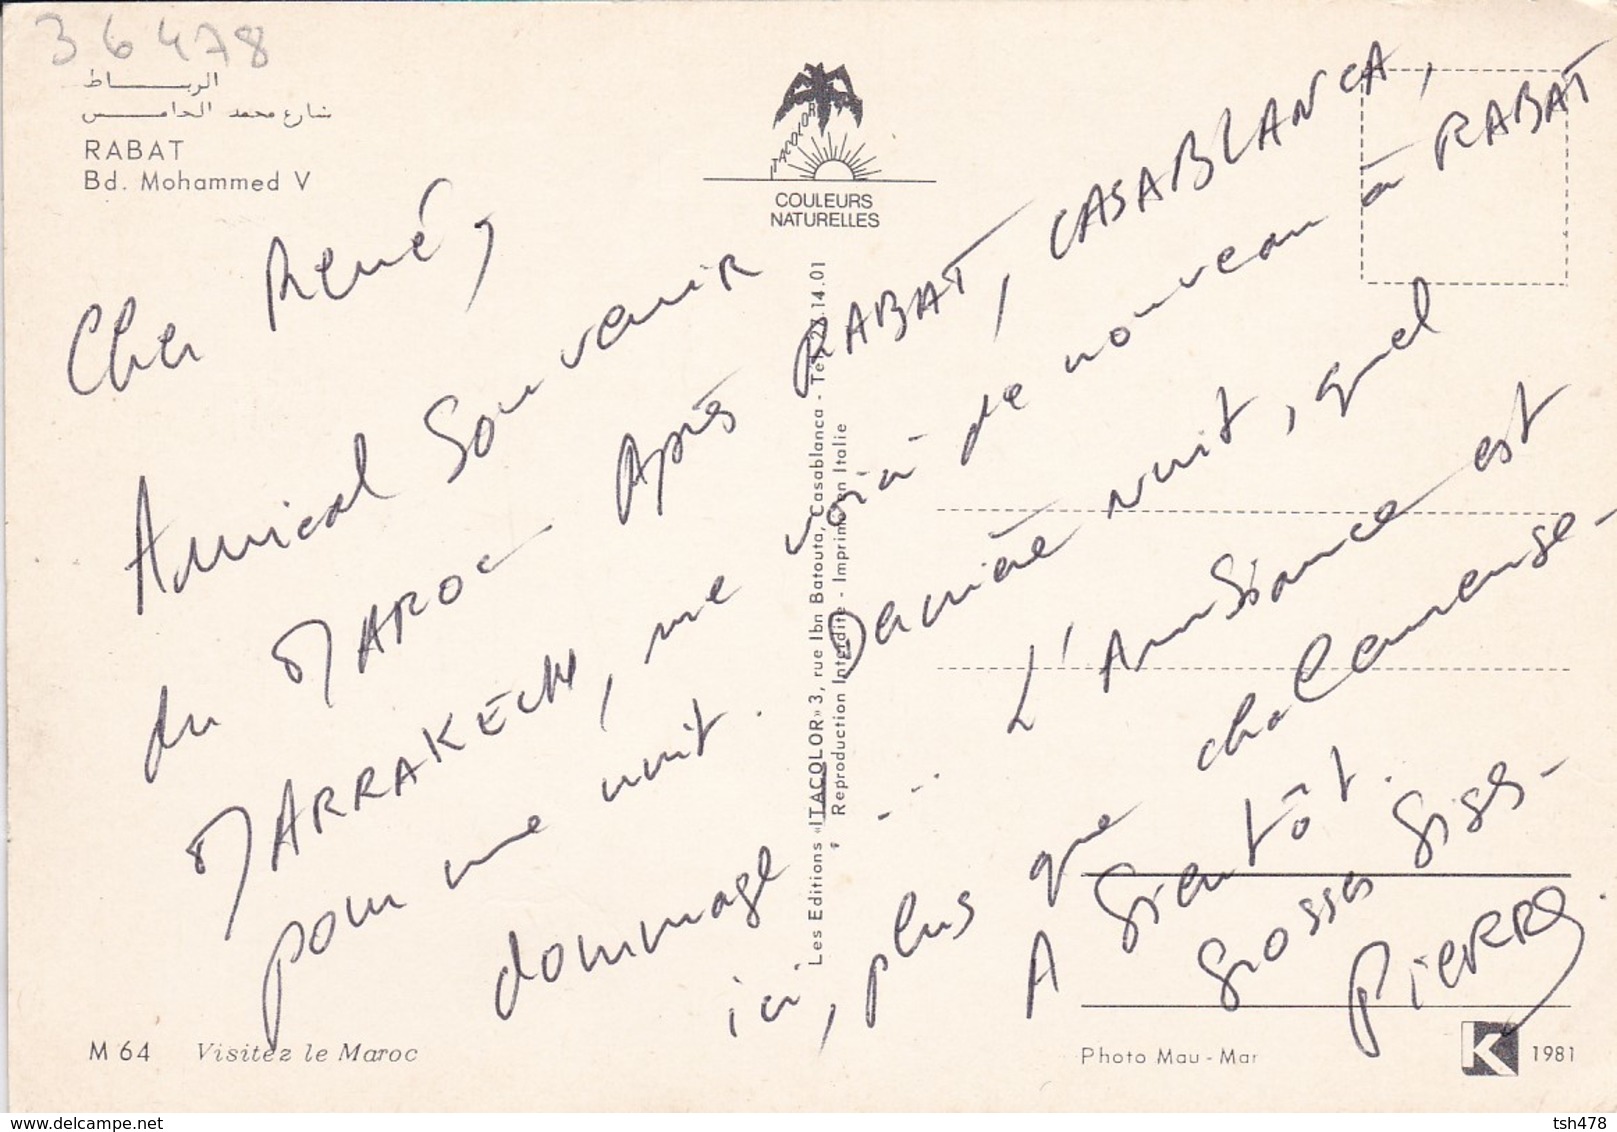 36478
الرباط
شارع محمد الخامس
RABAT
Bd. Mohammed V
ITACOLOR
COULEURS
NATURELLES
Cher René,
Amical Souvenir
du MAROC Après RABAT, CASABLANCA,
MARRAKECH, me voici de nouveau à RABAT
pour une nuit. Dernière nuit, quel
dommage ... L'Ambiance est
ici, plus que chaleureuse -
A Bientôt.
Grosses Bises -
PIERRE.
Les Editions «ITACOLOR» 3, rue Ibn Batouta, Casablanca - Tél. 14.01
Reproduction Interdite - Imprimé en Italie
M 64 Visitez le Maroc
Photo Mau - Mar
K 1981
tsh478